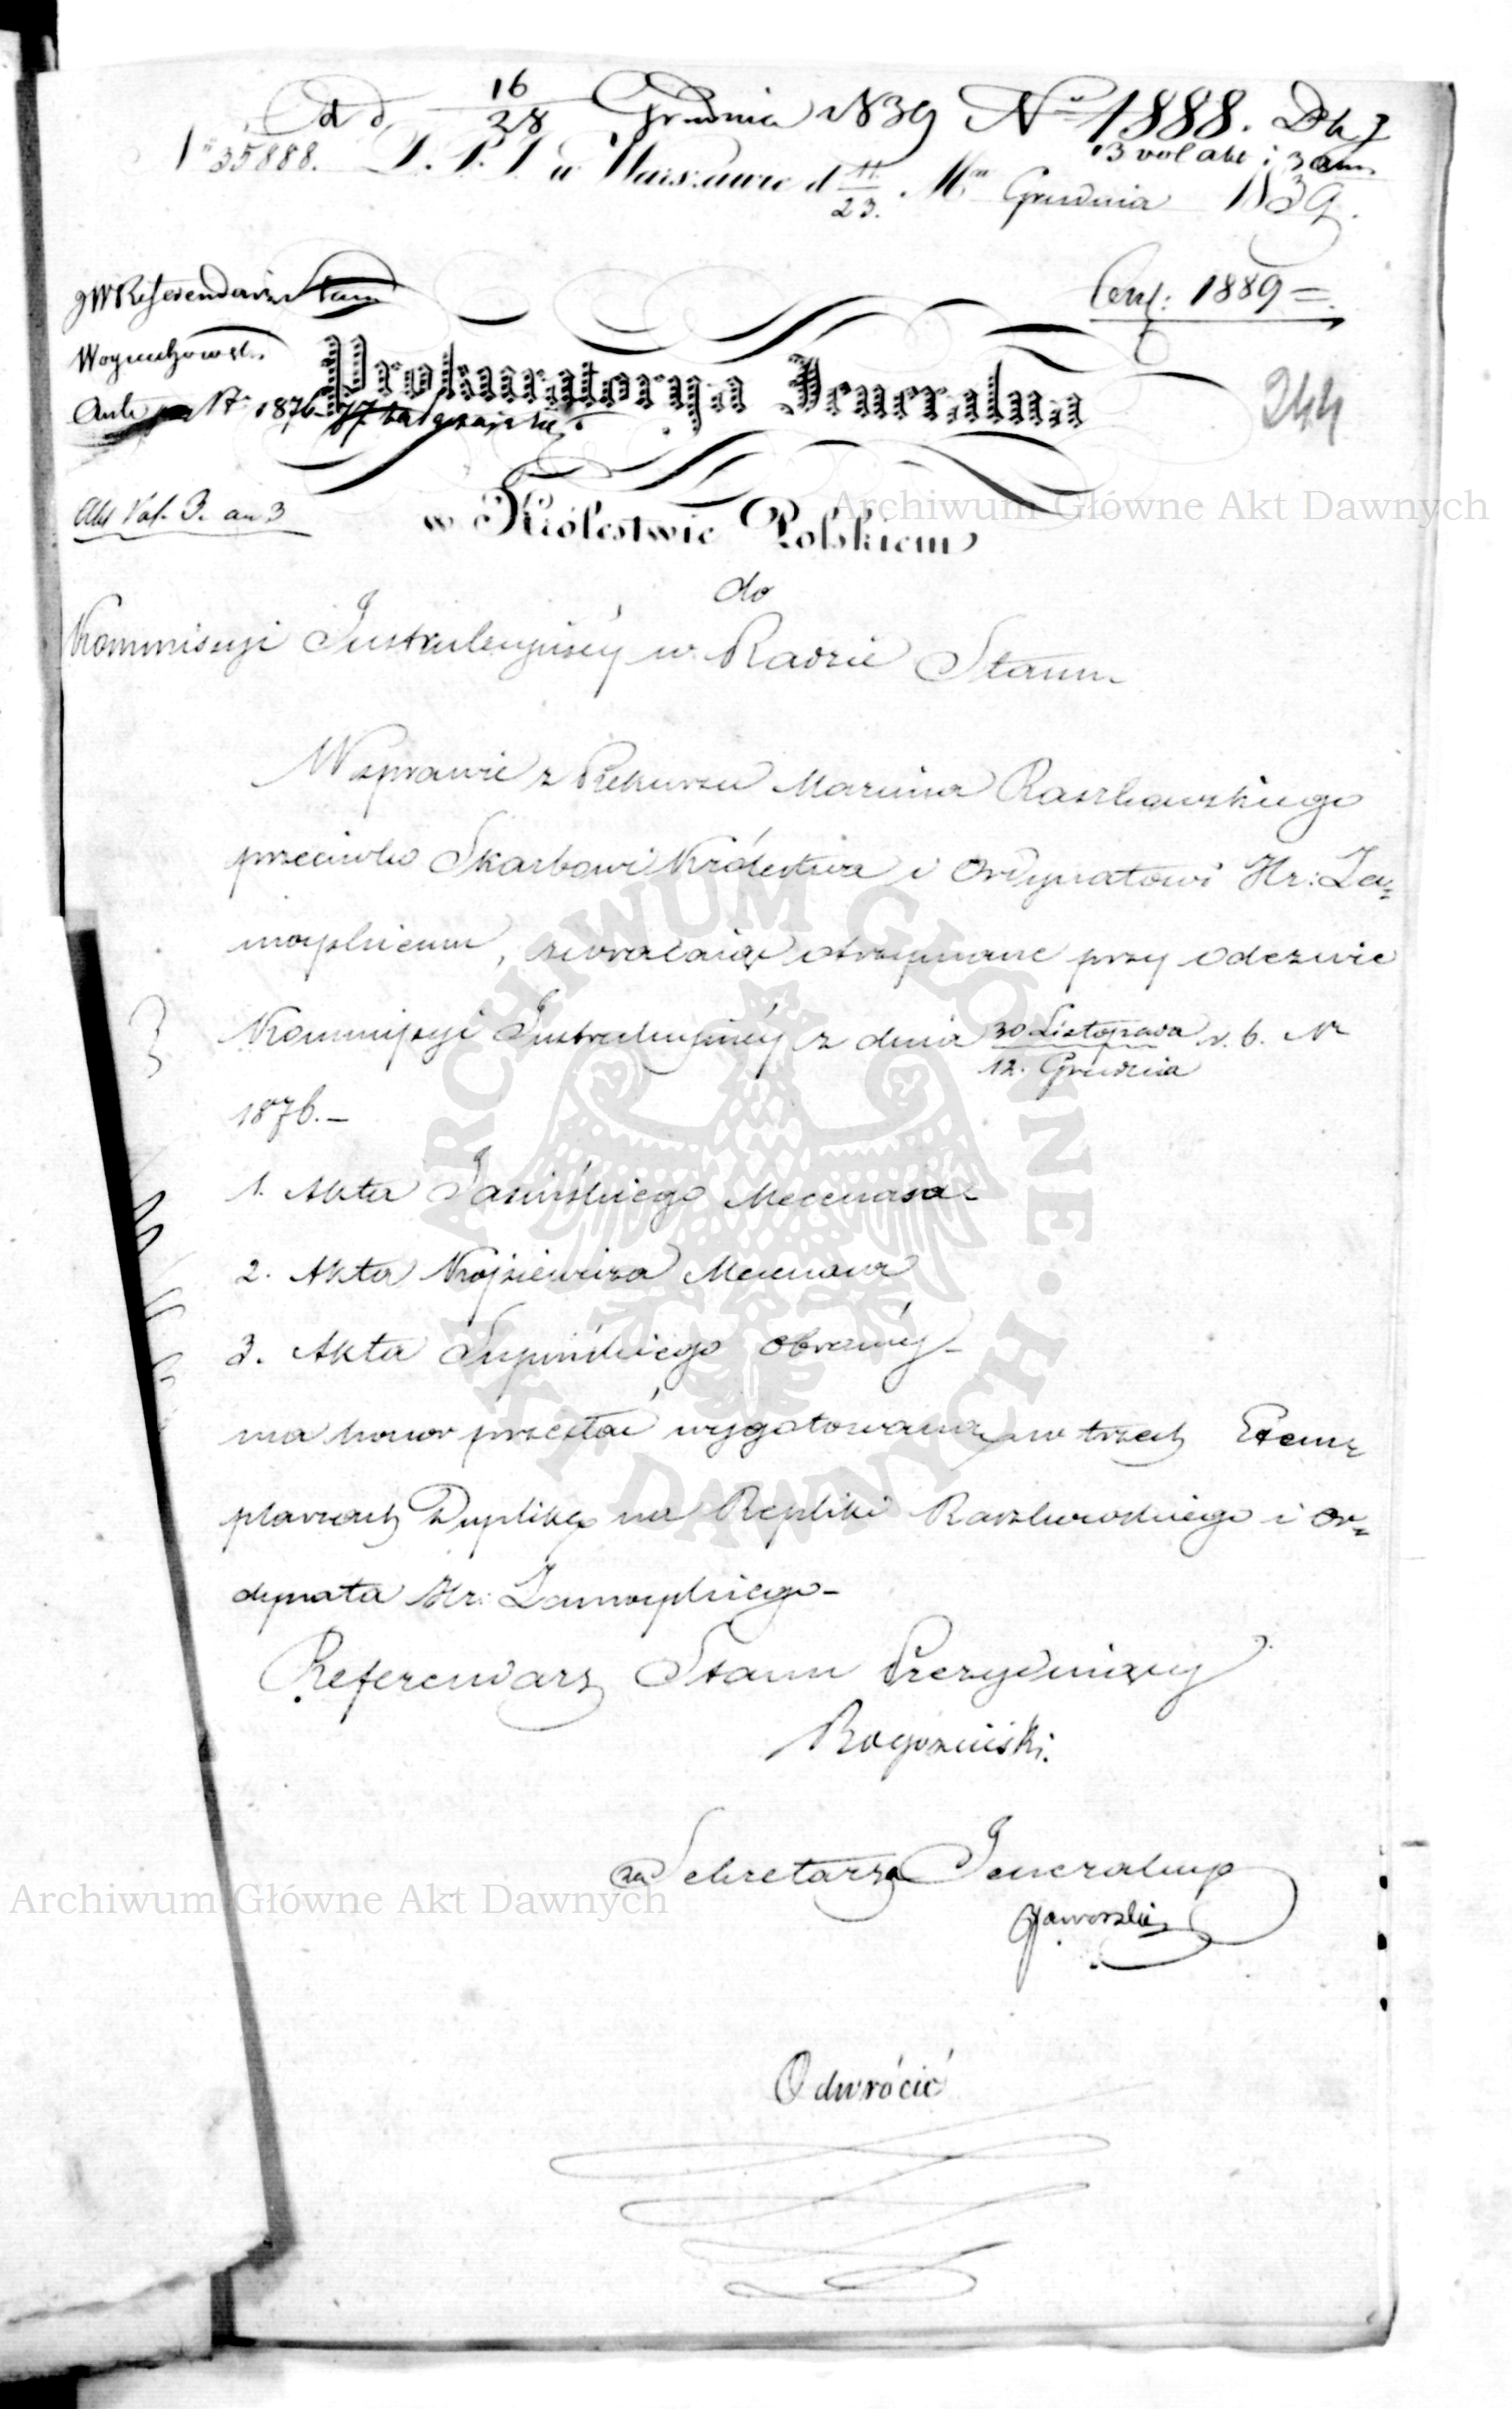 d d 16/28 Grudnia 1839 N° 1888.
3 vol akt i 3 an
N° 35888. D. P. I. w Warszawie d 11/23. M^ca Grudnia 1839.
JW Referendarz Stanu
Conf: 1889
Woyciechowski
Prokuratorya Jeneralna
244
Akt Vol. 3. an 3
w Królestwie Polskiem
do
Kommisyi Instrukcyjnéy w Radzie Stanu
W sprawie z Rekursu Marcina Raszkowskiego
przeciwko Skarbowi Królestwa i Ordynatowi Hr: Za=
moyskiemu, zwracaiąc otrzymane przy odezwie
Kommissyi Instrukcyjnéy z dnia 30 Listopada/12. Grudnia r. b. Nr
1876.–
1. Akta Jasińskiego Mecenasa
2. Akta Krajsiewicza Mecenasa
3. Akta Łupińskiego Obrońcy
ma honor przesłać wygotowaną w trzech Exem=
plarzach Duplikę na Repliki Raszkowskiego i Or=
dynata Hr: Zamoyskiego–
Referendarz Stanu Prezyduiący
Rogoziński.
za Sekretarza Jeneralnego
Jaworski
Odwrócić
Archiwum Główne Akt Dawnych
ARCHIWUM GŁÓWNE AKT DAWNYCH
Archiwum Główne Akt Dawnych